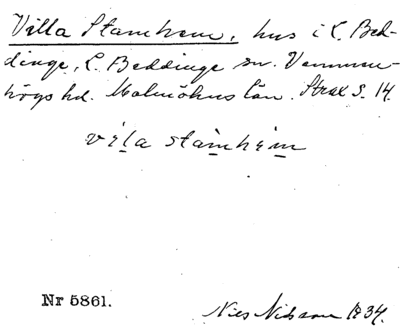 Villa Stamhem, hus i L. Bed-
dinge, L. Beddinge sn. Vemmen-
högs hd. Malmöhus län. Strax S. 14.
vila stamhem
Nr 5861.
Nils Nilsson 1934.